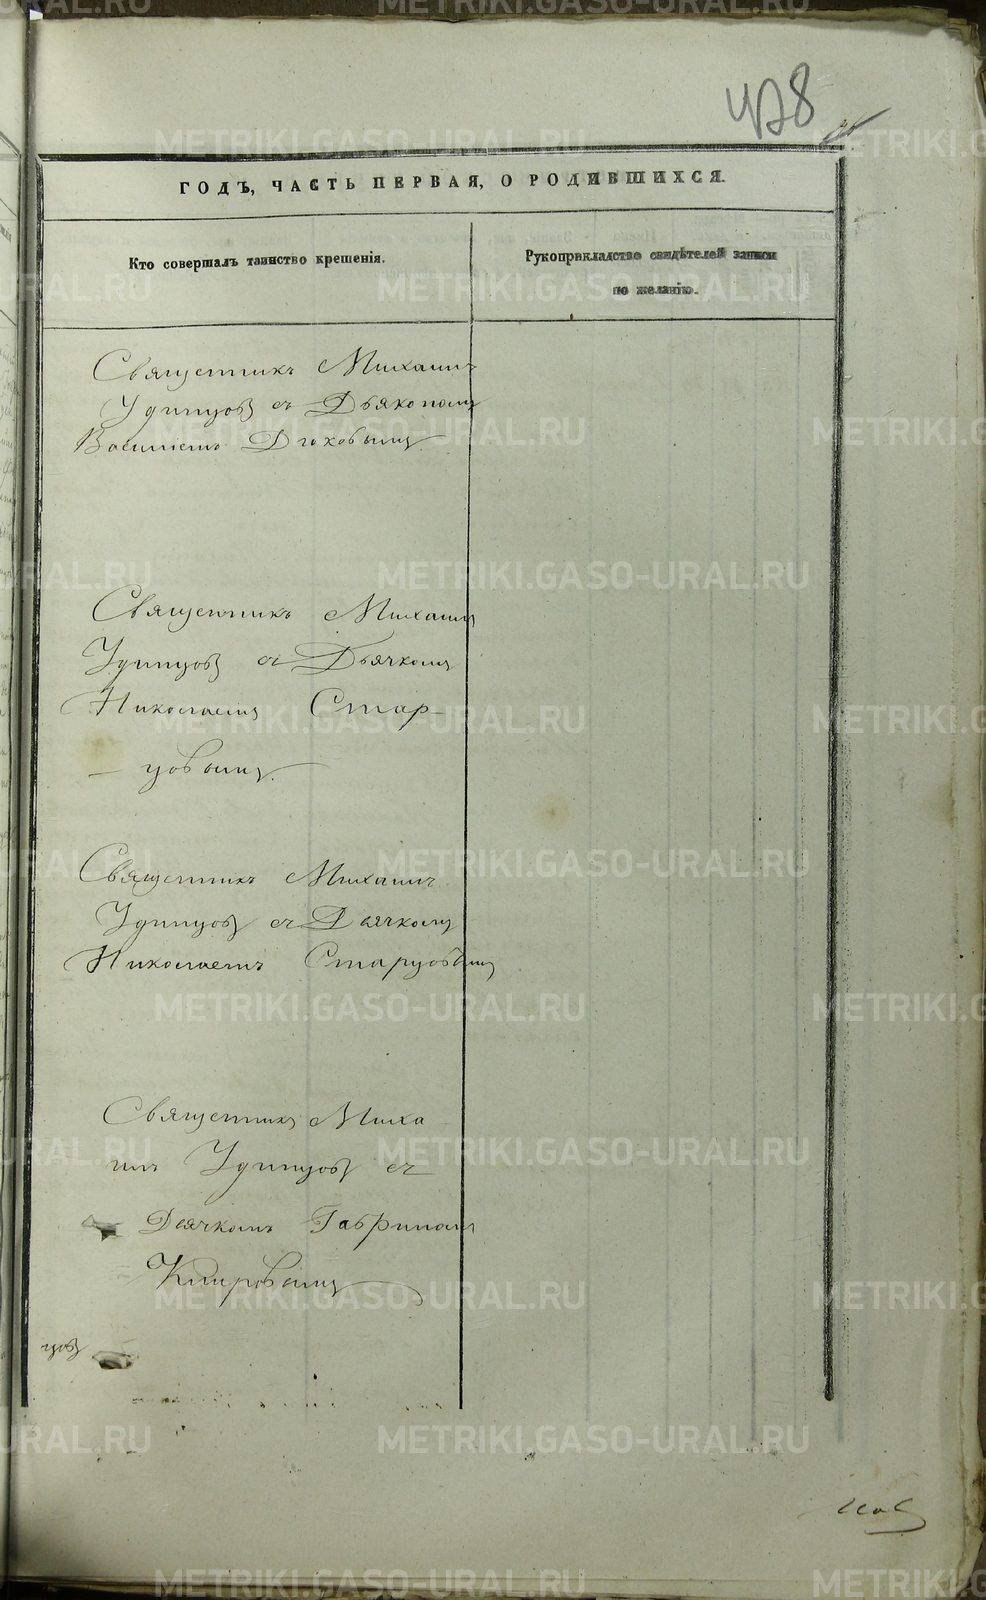 428
ГОДЪ, ЧАСТЬ ПЕРВАЯ, О РОДИВШИХСЯ.
Кто совершалъ таинство крещенія.
Рукоприкладство свидѣтелей записи
по желанію.
Священникъ Михаилъ
Удинцовъ съ Дьякономъ
Василіемъ
Священникъ Михаилъ
Удинцовъ съ Дьячкомъ
Николаемъ Стар-
цовымъ.
Священникъ Михаилъ
Удинцовъ съ Дьячкомъ
Николаемъ Старцовымъ
Священникъ Миха
илъ Удинцовъ съ
Дьячкомъ Гавриломъ
Кипровымъ
цовъ
METRIKI.GASO-URAL.RU